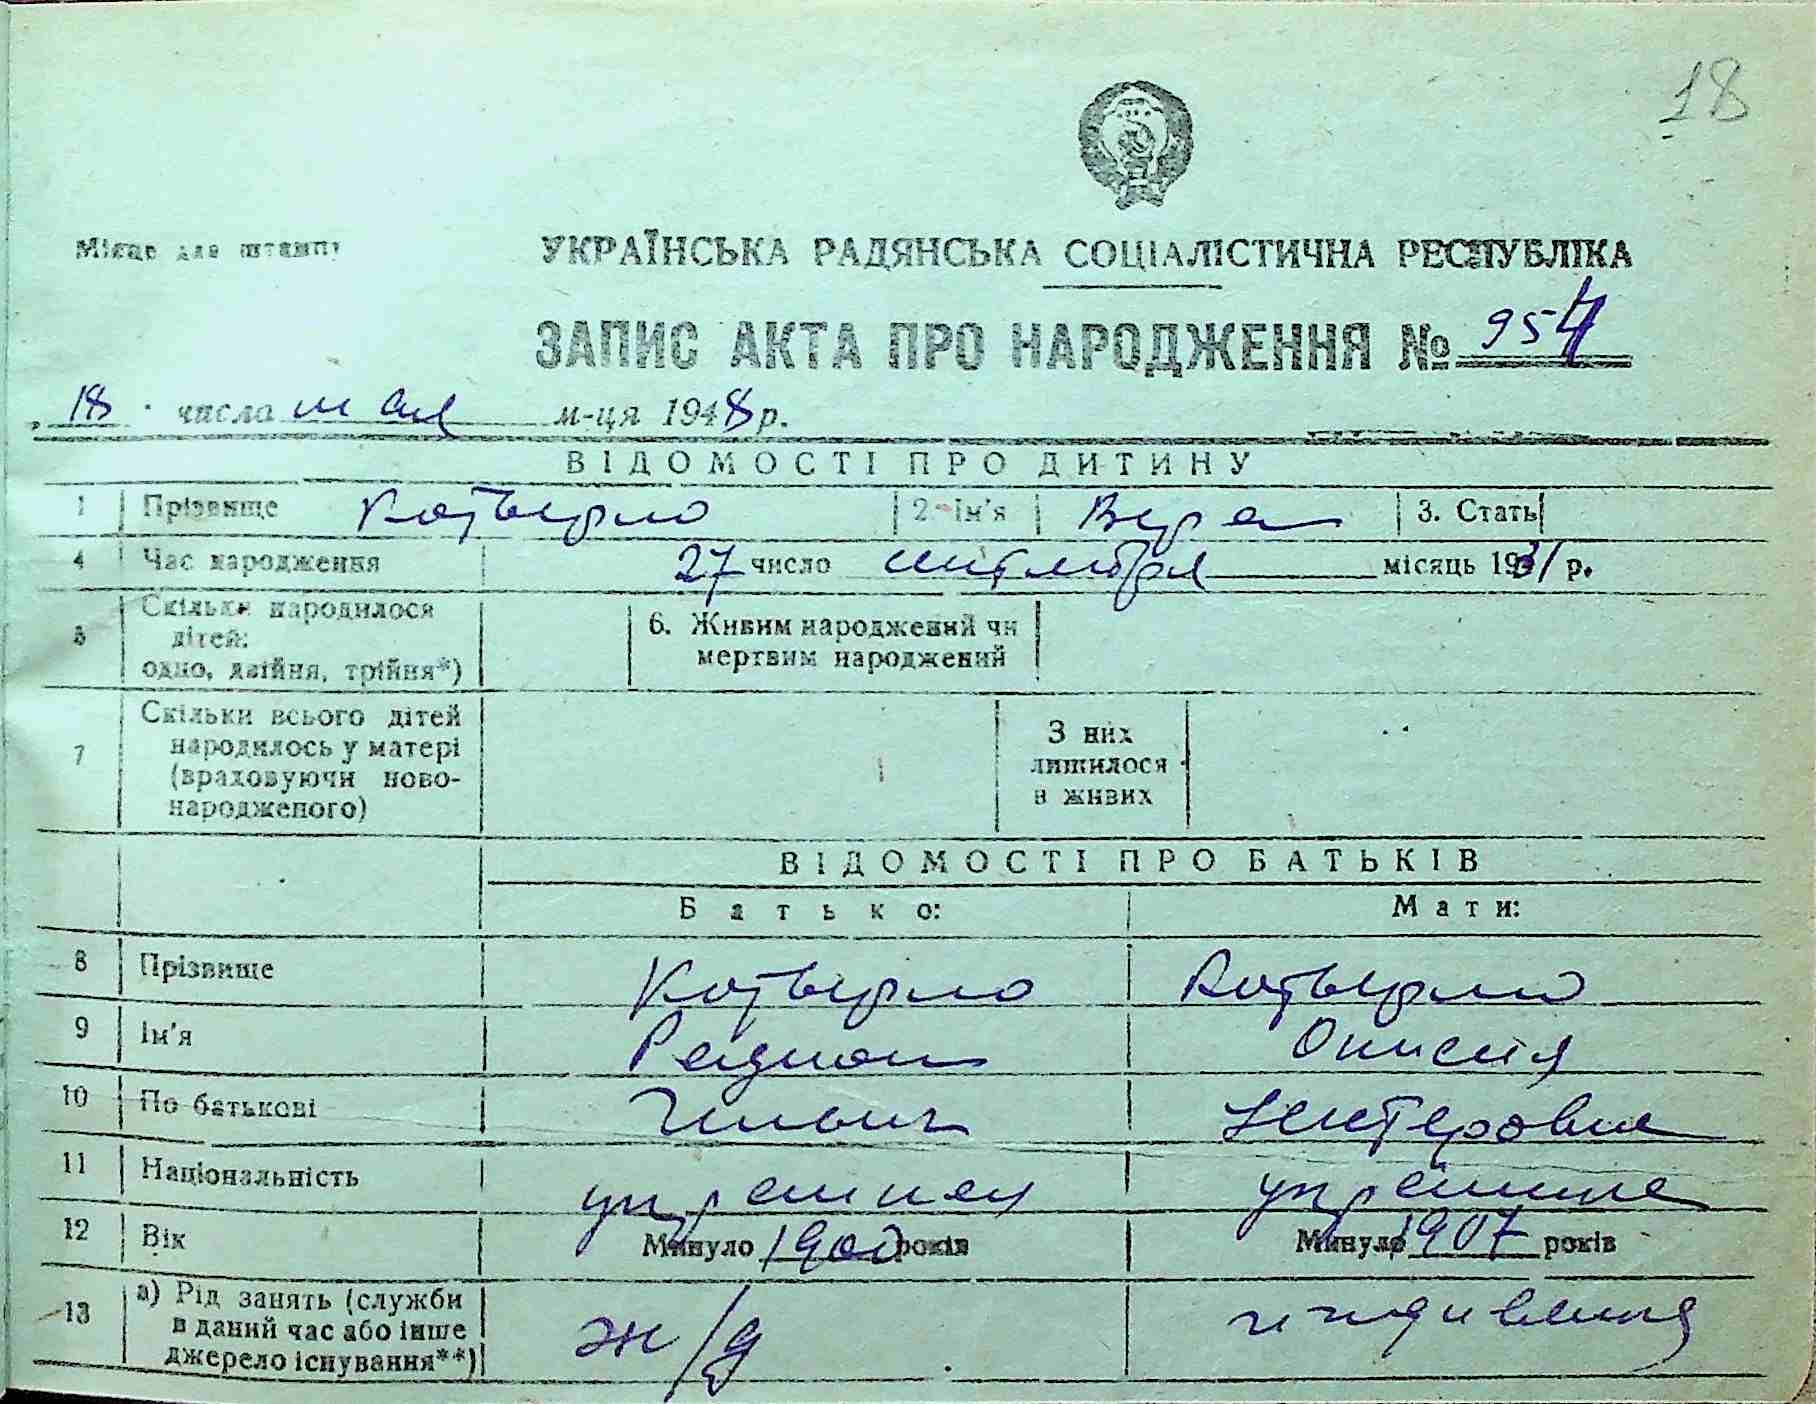 18
Місце для штампу
УКРАЇНСЬКА РАДЯНСЬКА СОЦІАЛІСТИЧНА РЕСПУБЛІКА
ЗАПИС АКТА ПРО НАРОДЖЕННЯ № 954
18 числа мая м-ця 1948 р.
ВІДОМОСТІ ПРО ДИТИНУ
1 Прізвище 2. Ім'я Вера 3. Стать
4 Час народження 27 число сентября місяць 1931 р.
5 Скільки народилося дітей: одно, двійня, трійня*)
6. Живим народжений чи мертвим народжений
7 Скільки всього дітей народилось у матері (враховуючи новонародженого)
З них лишилося в живих
ВІДОМОСТІ ПРО БАТЬКІВ
Батько: Мати:
8 Прізвище
9 Ім'я Радион
10 По батькові Ильич Нестеровна
11 Національність украинец украинка
12 Вік Минуло 1900 років Минуло 1907 років
13 а) Рід занять (служби в даний час або інше джерело існування**) ж/д иждивения